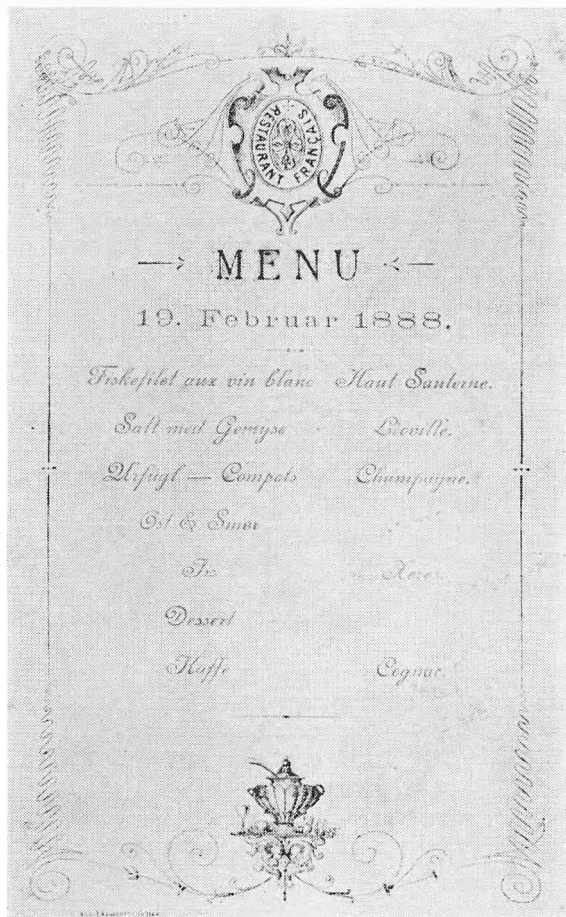 RESTAURANT FRANÇAIS
MENU
19. Februar 1888.
Fiskefilet aux vin blanc Haut Sauterne.
Salt med Gemyse Léoville.
Urfugl — Compots Champagne.
Ost & Smør
Is Xeres.
Dessert
Kaffe Cognac.